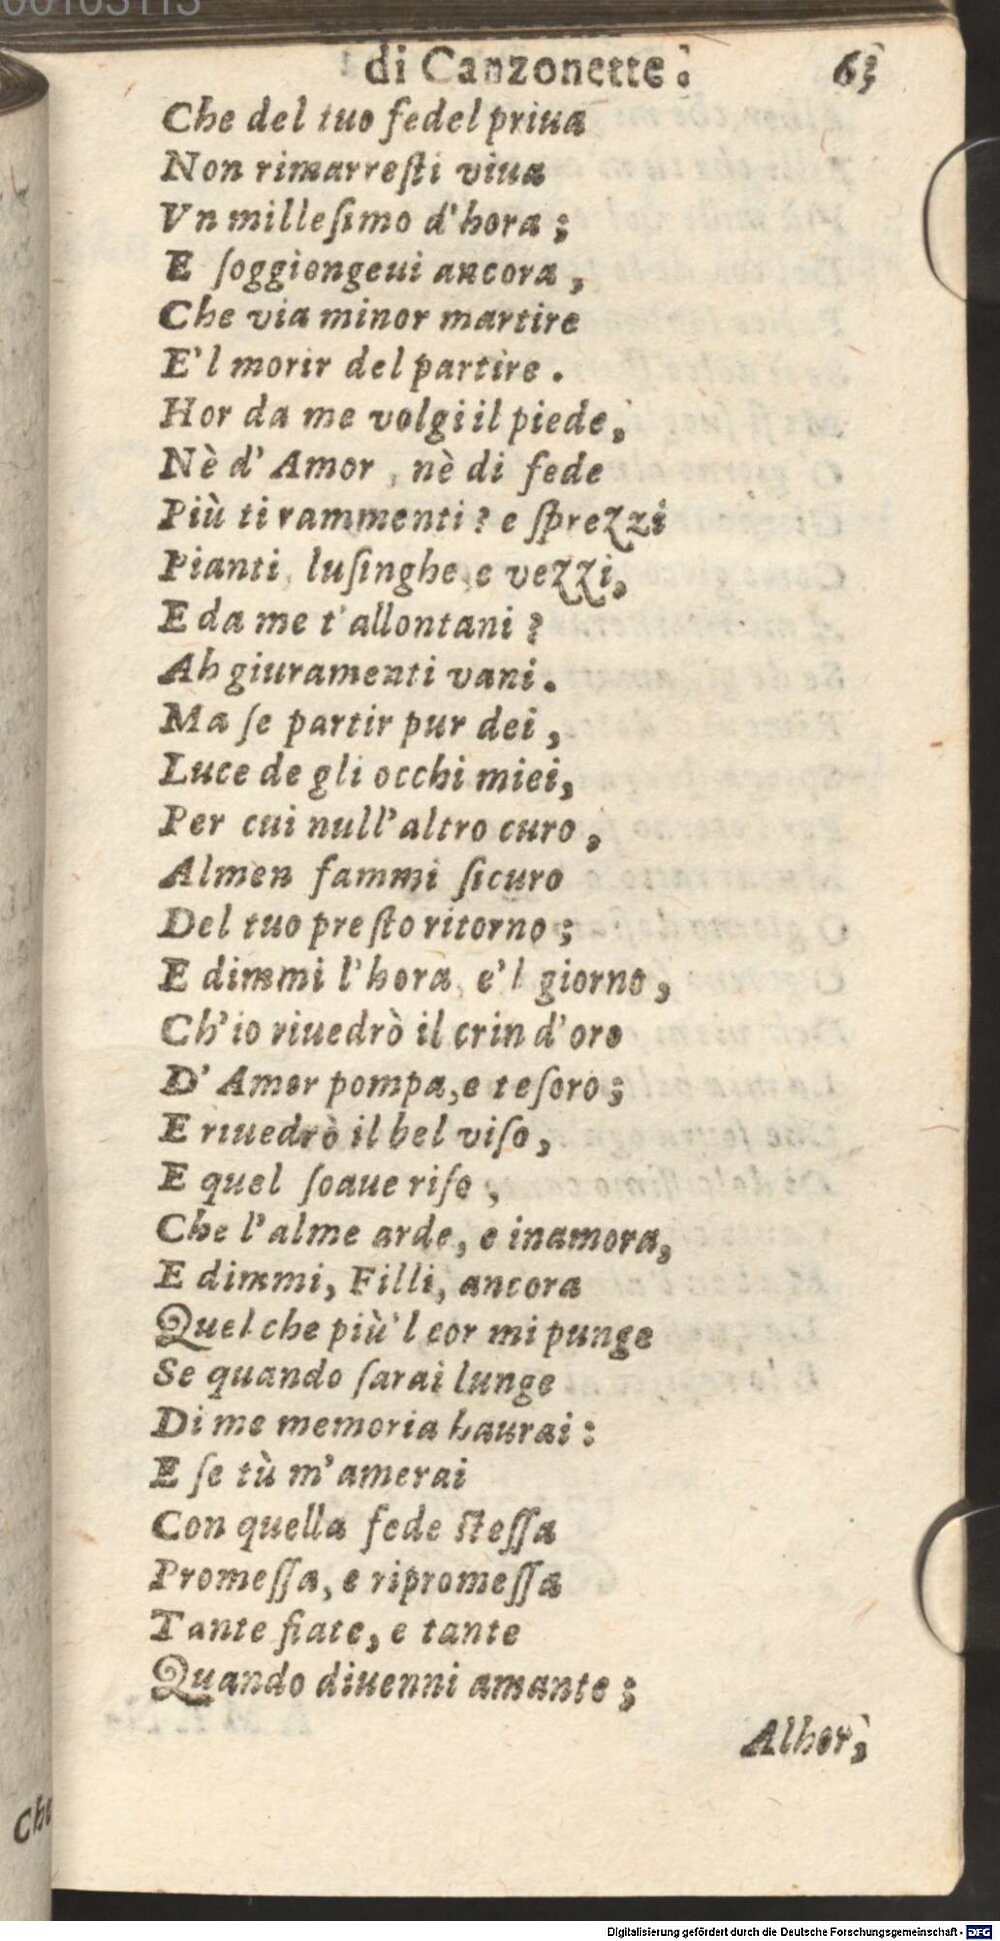 00103113
di Canzonette. 63
Che del tuo fedel priua
Non rimarreſti viua
Vn milleſimo d'hora;
E ſoggiongeui ancora,
Che via minor martire
E'l morir del partire.
Hor da me volgi il piede,
Nè d'Amor, nè di fede
Più ti rammenti? e ſprezzi
Pianti, luſinghe, e vezzi,
E da me t'allontani?
Ah giuramenti vani.
Ma ſe partir pur dei,
Luce de gli occhi miei,
Per cui null'altro curo,
Almen fammi ſicuro
Del tuo preſto ritorno;
E dimmi l'hora, e'l giorno,
Ch'io riuedrò il crin d'oro
D'Amor pompa, e teſoro;
E riuedrò il bel viſo,
E quel ſoaue riſo,
Che l'alme arde, e inamora,
E dimmi, Filli, ancora
Quel che più'l cor mi punge
Se quando ſarai lunge
Di me memoria haurai:
E ſe tù m'amerai
Con quella fede ſteſſa
Promeſſa, e ripromeſſa
Tante fiate, e tante
Quando diuenni amante;
Alhor,
Che
Digitalisierung gefördert durch die Deutsche Forschungsgemeinschaft - DFG